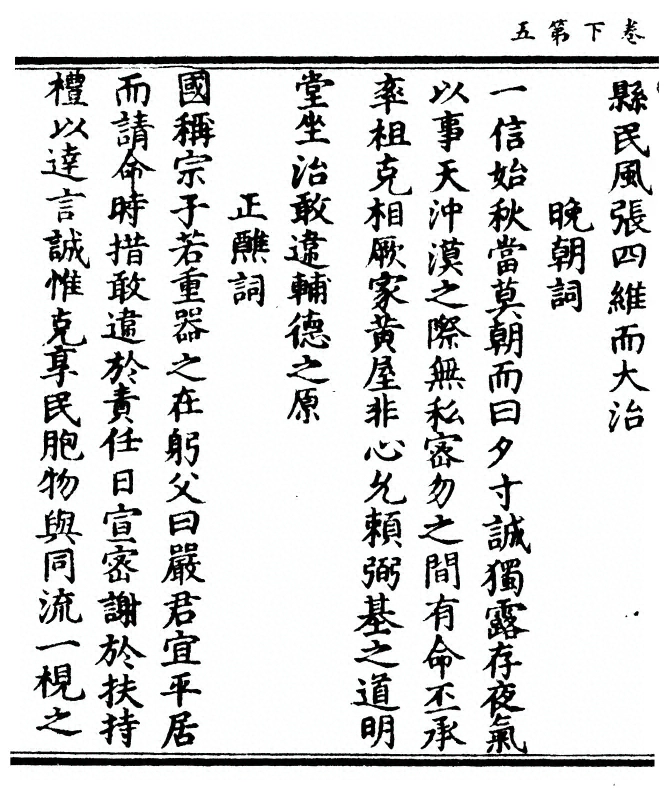 卷下第五
縣民風張四維而大治
晚朝詞
一信始秋當莫朝而曰夕寸誠獨露存夜氣
以事天沖漠之際無私密勿之間有命丕承
率祖克相厥家黃屋非心允賴弼基之道明
堂坐治敢違輔德之原
正醮詞
國稱宗子若重器之在躬父曰嚴君宜平居
而請命時措敢違於責任日宣密謝於扶持
禮以達言誠惟克享民胞物與同流一視之